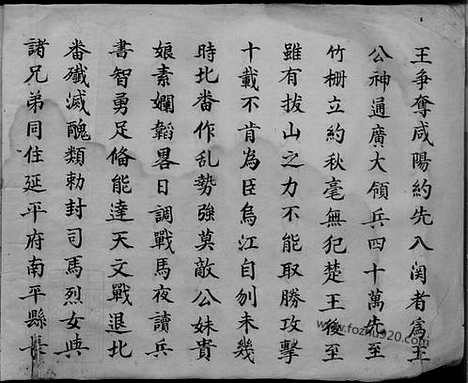 王爭奪咸陽約先入関者為王
公神通廣大領兵四十萬先至
竹柵立約秋毫無犯楚王後至
雖有拔山之力不能取勝攻擊
十載不肯為臣烏江自刎未幾
時北畨作乱勢強莫敵公妹貴
娘素嫻韜畧日調戰馬夜讀兵
書智勇足俻能達天文戰退北
畨殲滅醜類勅封司馬烈女與
諸兄弟同住延平府南平縣長